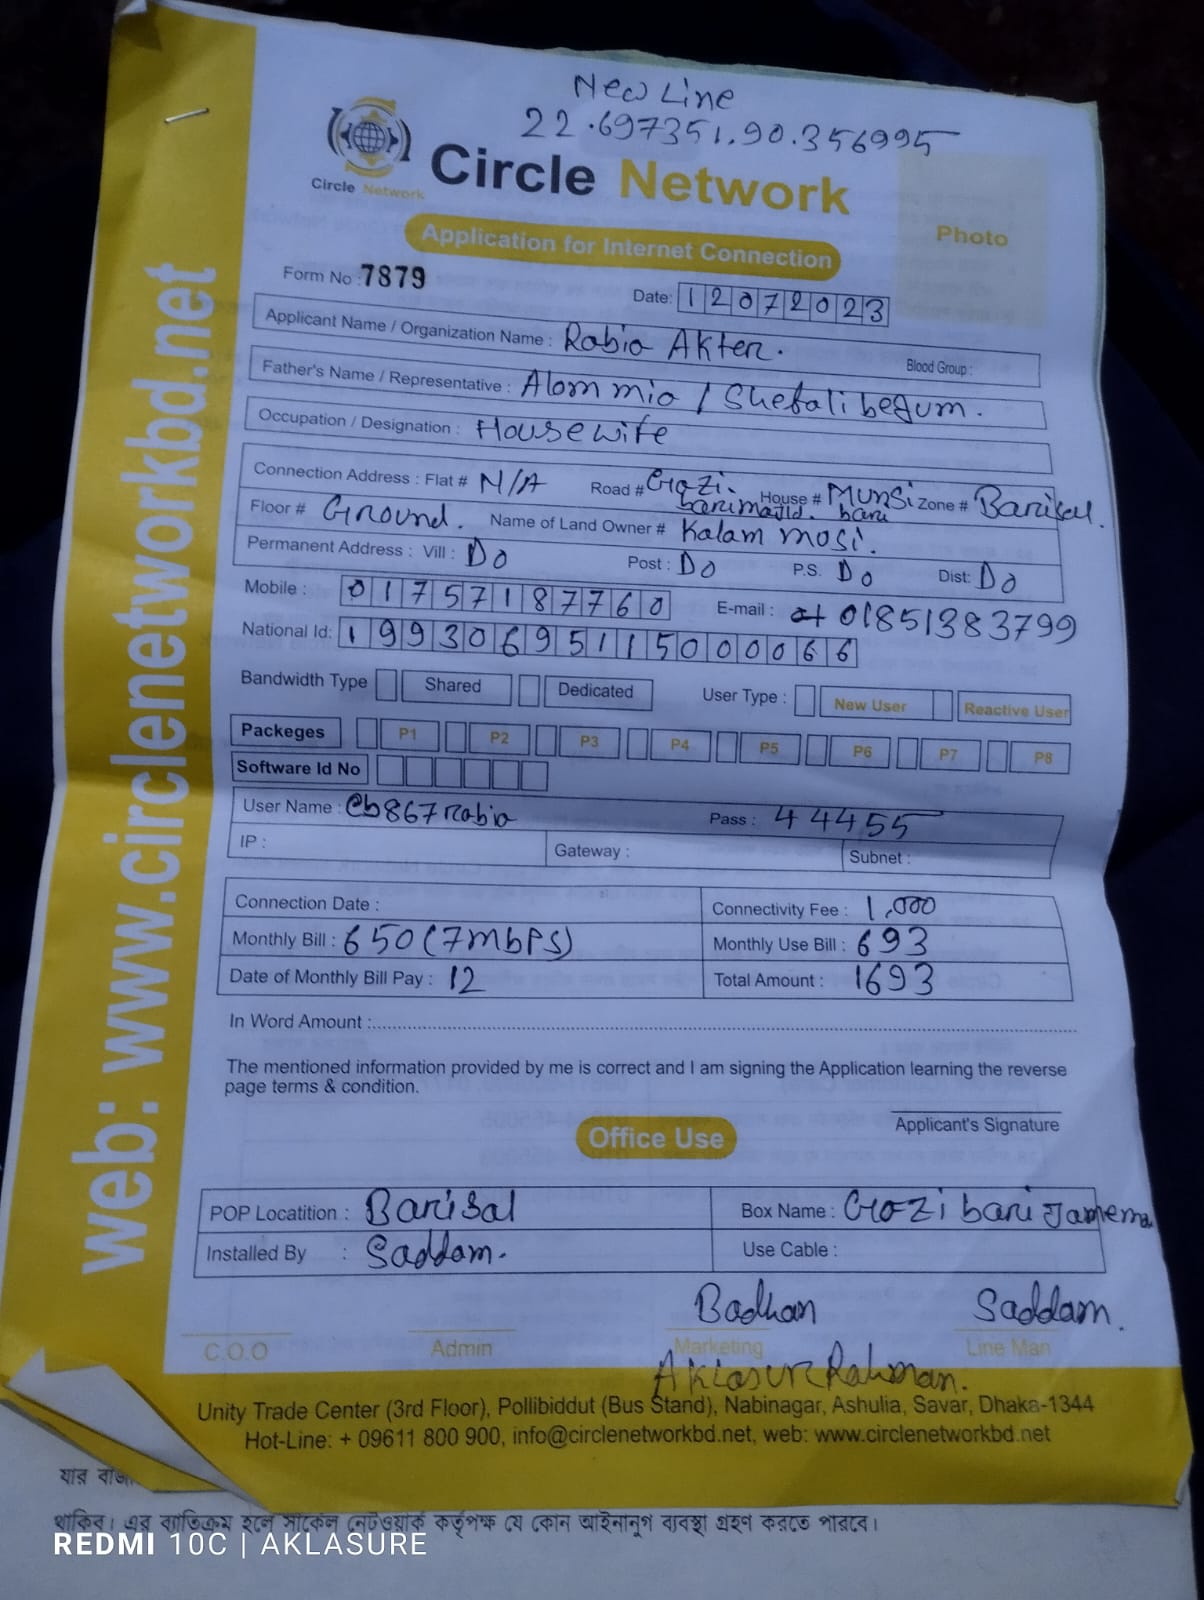 New Line
22.697351,90.356995
Circle Network
Circle Network
Photo
Application for Internet Connection
Form No : 7879
Date: 12072023
Applicant Name / Organization Name : Rabia Akter.
Blood Group :
Father's Name / Representative : Alom mia / Shefali begum.
Occupation / Designation : Housewife
Connection Address : Flat # N/A Road # Gazi barimasjid. House # Munsi bari Zone # Barisal.
Floor # Ground. Name of Land Owner # Kalam mosi.
Permanent Address : Vill : Do Post : Do P.S. Do Dist: Do
Mobile : 01757187760 E-mail : 01851383799
National Id: 19930695115000066
Bandwidth Type Shared Dedicated User Type : New User Reactive User
Packeges P1 P2 P3 P4 P5 P6 P7 P8
Software Id No
User Name : Cb867rabia Pass : 44455
IP : Gateway : Subnet :
Connection Date : Connectivity Fee : 1,000
Monthly Bill : 650(7mbps) Monthly Use Bill : 693
Date of Monthly Bill Pay : 12 Total Amount : 1693
In Word Amount :
The mentioned information provided by me is correct and I am signing the Application learning the reverse
page terms & condition.
Applicant's Signature
Office Use
POP Locatition : Barisal Box Name : Gazi bari
Installed By : Saddam. Use Cable :
Badhan Saddam.
C.O.O Admin Marketing Line Man
Aklasur Rahman.
Unity Trade Center (3rd Floor), Pollibiddut (Bus Stand), Nabinagar, Ashulia, Savar, Dhaka-1344
Hot-Line: + 09611 800 900, info@circlenetworkbd.net, web: www.circlenetworkbd.net
web: www.circlenetworkbd.net
যার
থাকিব। এর ব্যতিক্রম হলে সার্কেল নেটওয়ার্ক কর্তৃপক্ষ যে কোন আইনানুগ ব্যবস্থা গ্রহণ করতে পারবে।
REDMI 10C | AKLASURE